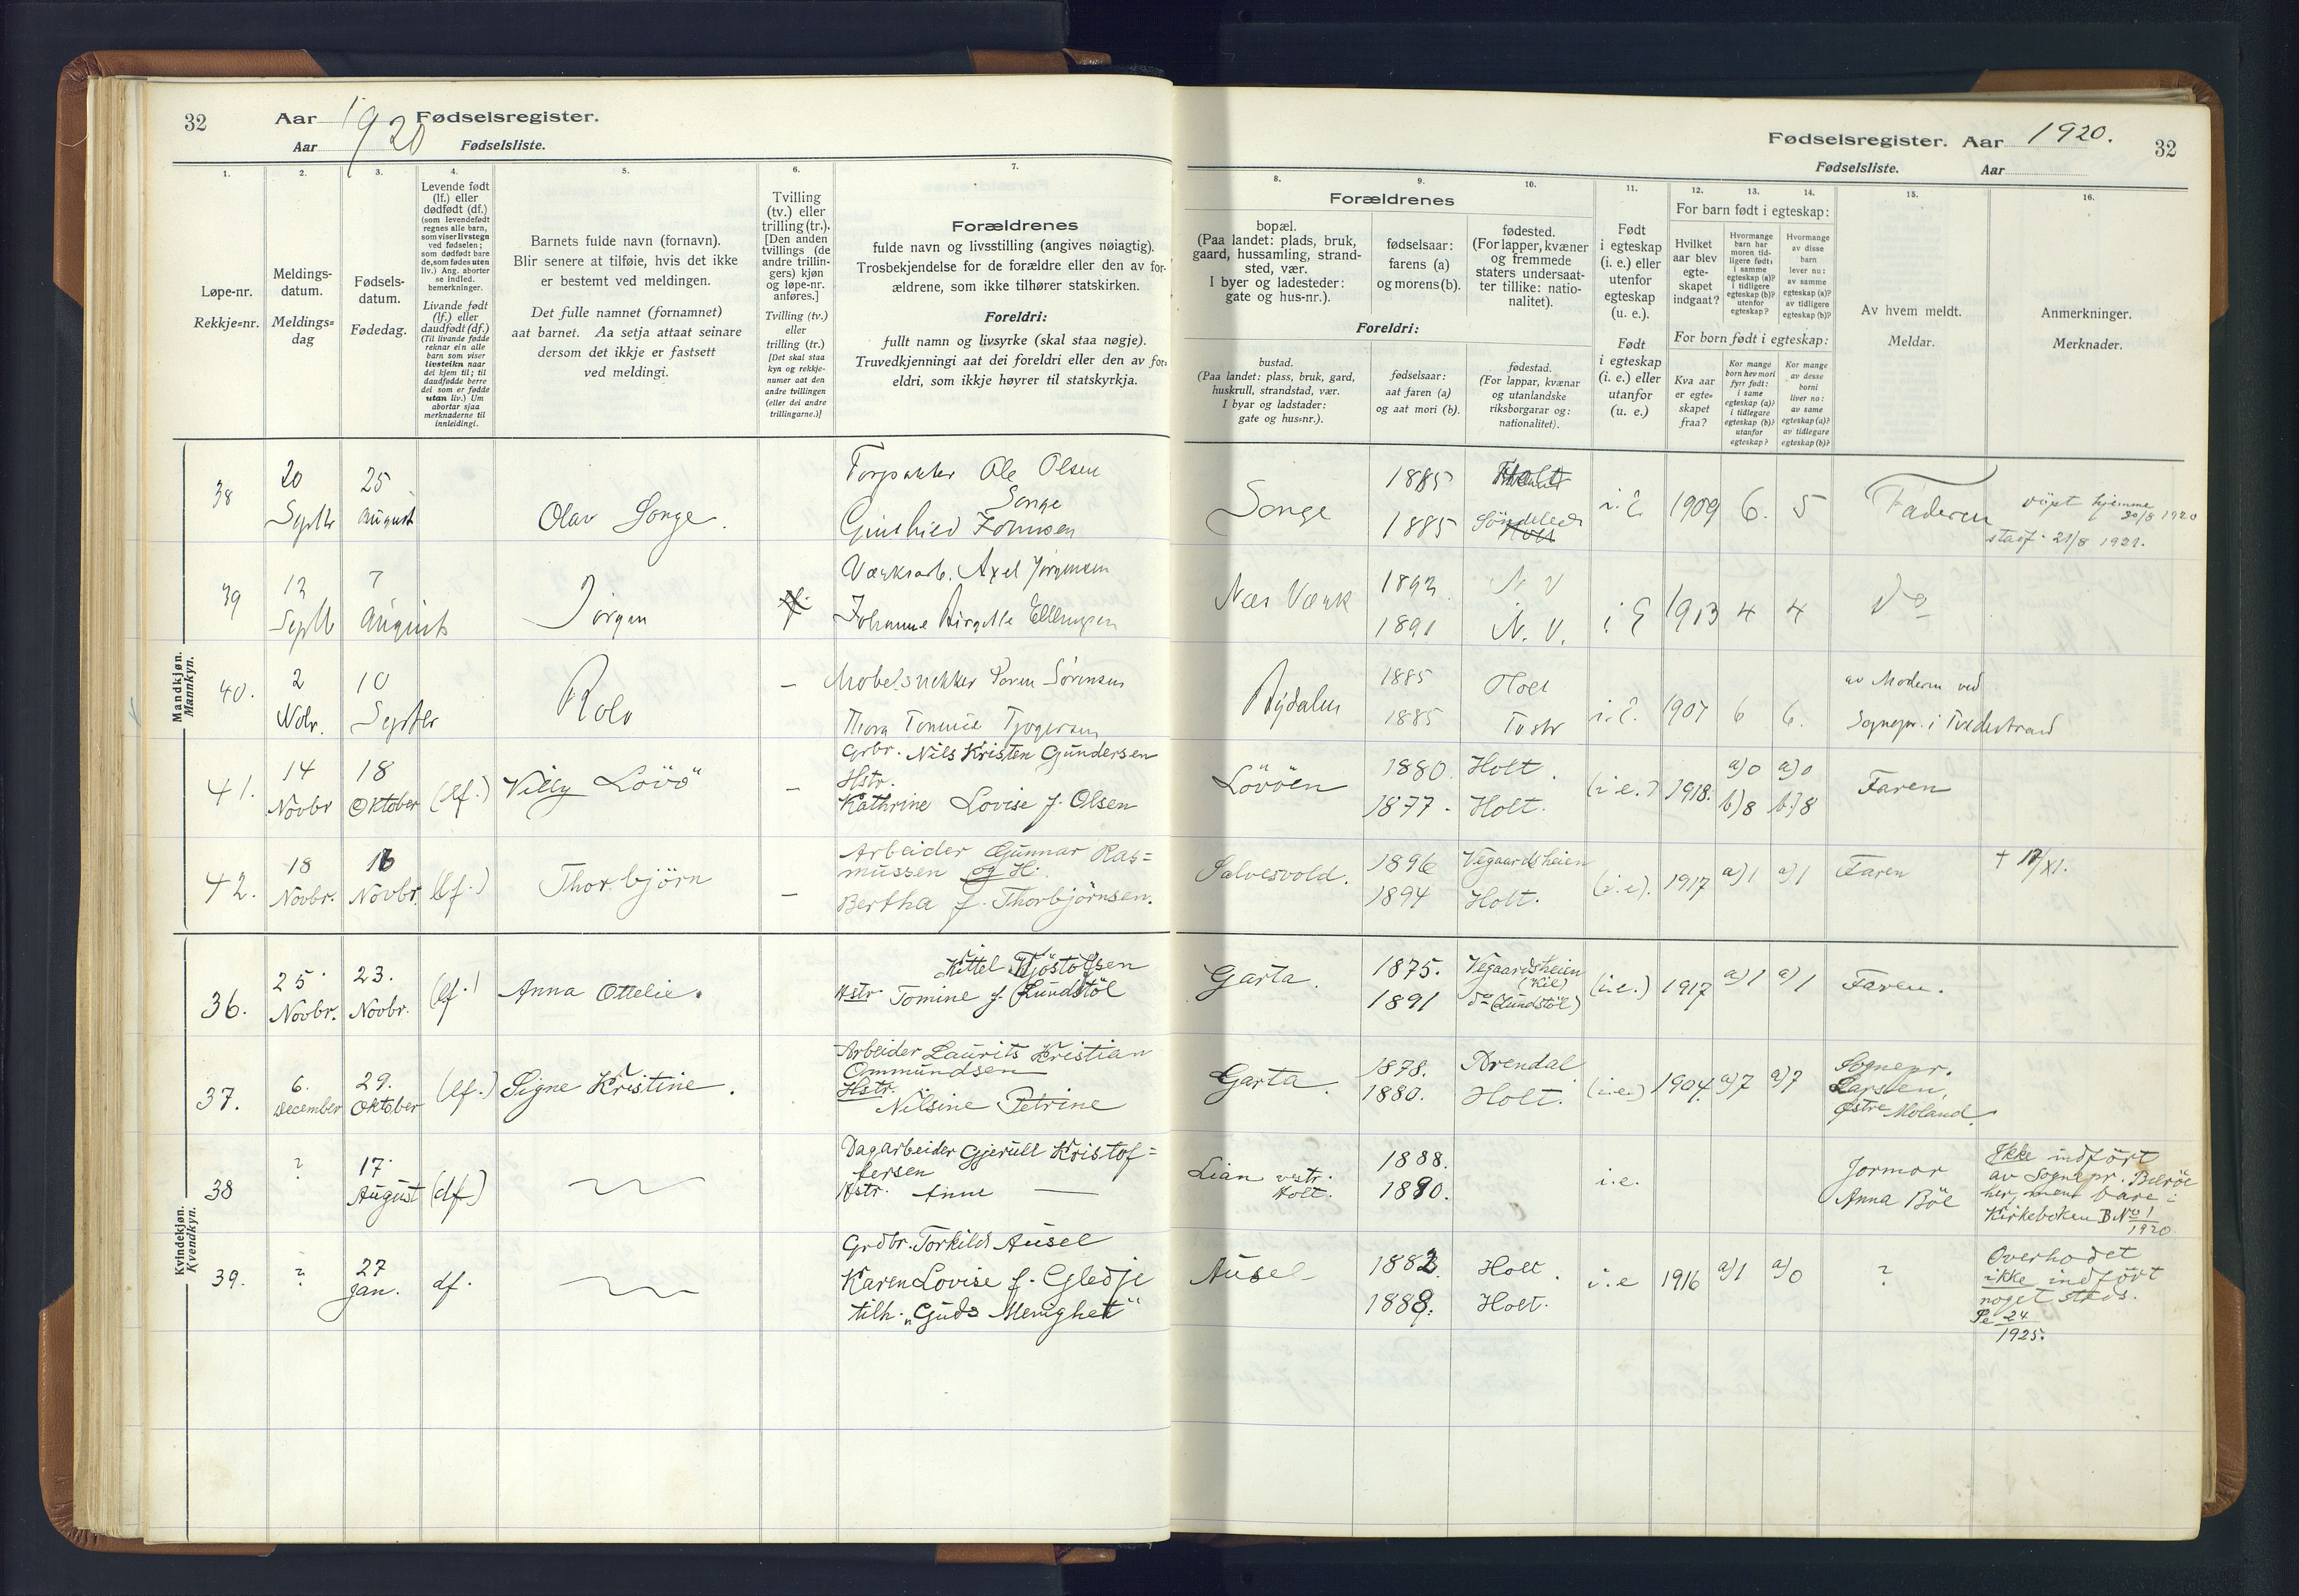 32 Aar 1920 Fødselsregister.
Aar Fødselsliste.
1. 2. 3. 4. 5. 6. 7.
Løpe-nr.
Rekkje=nr.
Meldings-
datum.
Meldings=
dag
Fødsels-
datum.
Fødedag.
Levende født
(lf.) eller
dødfødt (df.)
(som levendefødt
regnes alle barn,
som viser livstegn
ved fødselen;
som dødfødt bare
de, som fødes uten
liv.) Ang. aborter
se indled.
bemerkninger.
Livande født
(lf.) eller
daudfødt (df.)
(Til livande fødde
reknar ein alle
barn som viser
livsteikn naar
dei kjem til; til
daudfødde berre
dei som er fødde
utan liv.) Um
abortar sjaa
merknaderne til
innleidingi.
Barnets fulde navn (fornavn).
Blir senere at tilføie, hvis det ikke
er bestemt ved meldingen.
Det fulle namnet (fornamnet)
aat barnet. Aa setja attaat seinare
dersom det ikkje er fastsett
ved meldingi.
Tvilling
(tv.) eller
trilling (tr.).
[Den anden
tvillings (de
andre trillin-
gers) kjøn
og løpe-nr.
anføres.]
Tvilling (tv.)
eller
trilling (tr.)
[Det skal staa
kyn og rekkje-
numer aat den
andre tvillingen
(eller dei andre
trillingarne.)]
Forældrenes
fulde navn og livsstilling (angives nøiagtig).
Trosbekjendelse for de forældre eller den av for-
ældrene, som ikke tilhører statskirken.
Foreldri:
fullt namn og livsyrke (skal staa nøgje).
Truvedkjenningi aat dei foreldri eller den av for-
eldri, som ikkje høyrer til statskyrkja.
Mandkjøn.
Mannkyn.
38 20 Septbr 25 August Olav Songe.
Ole Olsen
Songe
39 12 Septb 7 August Jörgen
Værksarb. Axel Jörgensen
40. 2 Nobr. 10 Septbr Rolv –
Sörensen
41. 14 Novbr 18 Oktober (lf.) Villy Lövö" –
Grbr. Nils Kristen Gundersen
Hstr.
Kathrine Lovise f. Olsen
42. 18 Novbr. 16 Novbr. (lf.) Thorbjörn –
Arbeider Gunnar Ras=
mussen og H.
Bertha f. Thorbjörnsen.
Kvindekjøn.
Kvendkyn.
36. 25 Novbr. 23. Novbr. (lf.) Anna Ottelie.
Kittel Kjöstolfsen
Hstr. Tomine f. (Lundstöl
37. 6. December 29. Oktober (lf.) Signe Kristine.
Arbeider Laurits Kristian
Ommundsen
Hstr.
Nilsine Petrine
38 ? 17 August (df)
Dagarbeider Gjerull Kristof=
fersen
Hstr. Anne —
39. ? 27 Jan. df.
Grdbr. Torkild Ausel
Karen Lovise f. Gledje
tilh. „Guds Menighet"
Fødselsregister. Aar 1920. 32
Fødselsliste. Aar
8. 9. 10. 11. 12. 13. 14. 15. 16.
Forældrenes
bopæl.
(Paa landet: plads, bruk,
gaard, hussamling, strand-
sted, vær.
I byer og ladesteder:
gate og hus-nr.).
fødselsaar:
farens (a)
og morens (b).
fødested.
(For lapper, kvæner
og fremmede
staters undersaat-
ter tillike: natio-
nalitet).
Foreldri:
bustad.
(Paa landet: plass, bruk, gard,
huskrull, strandstad, vær.
I byar og ladstader:
gate og hus=nr.).
fødselsaar:
aat faren (a)
og aat mori (b).
fødestad.
(For lappar, kvænar
og utanlandske
riksborgarar og:
nationalitet).
Født
i egteskap
(i. e.) eller
utenfor
egteskap
(u. e.).
Født
i egteskap
(i. e.) eller
utanfor
(u. e.)
For barn født i egteskap:
Hvilket
aar blev
egte-
skapet
indgaat?
Hvormange
barn har
moren tid-
ligere født:
i samme
egteskap (a)?
i tidligere
egteskap (b)?
utenfor
egteskap?
Hvormange
av disse
barn
lever nu:
av samme
egteskap (a)?
av tidligere
egteskap (b)?
For born født i egteskap:
Kva aar
er egte=
skapet
fraa?
Kor mange
born hev mori
fyrr født:
i same
egteskap (a)?
i tidlegare
egteskap (b)?
utanfor
egteskap?
Kor mange
av desse
borni
liver no:
av same
egteskap (a)?
av tidlegare
egteskap (b)?
Av hvem meldt.
Meldar.
Anmerkninger.
Merknader.
Songe 1885 1885 Söndeled i. E. 1909 6. 5 Faderen
döpt hjemme
20/8 1920
stadf. 21/8 1921.
Nes Værk 1892 1891 N. V. N. V. i E 1913 4 4 do
1885 1885 Holt i. E. 1907 6 6.
av Moderen ved
Sognepr. i Tvedestrand
Lövöen 1880. 1877. Holt. Holt. (i.e.) 1918. a) 0 b) 8 a) 0 b) 8 Faren
Salvesvold. 1896 1894 Vegaardsheien Holt. (i.e). 1917 a) 1 a) 1 Faren
Garta. 1875. 1891 Vegaardsheien (Kil) do (Lundstöl) (i.e.) 1917 a) 1 a) 1 Faren.
Garta. 1878. 1880. Arendal Holt. (i.e.) 1904. a) 7 a) 7
Sognepr.
Carsten,
Østre Moland.
Lian vstr. Holt. 1888. 1890. i.e.
Jormor
Anna Böe
Ikke indfört
av Sognepr.
her, men bare i
Kirkeboken B No 1
1920
Ausel 1882. 1888. Holt. Holt. i.e 1916 a) 1 a) 0 ?
Overhodet
ikke indfört
noget steds.
24
1925.